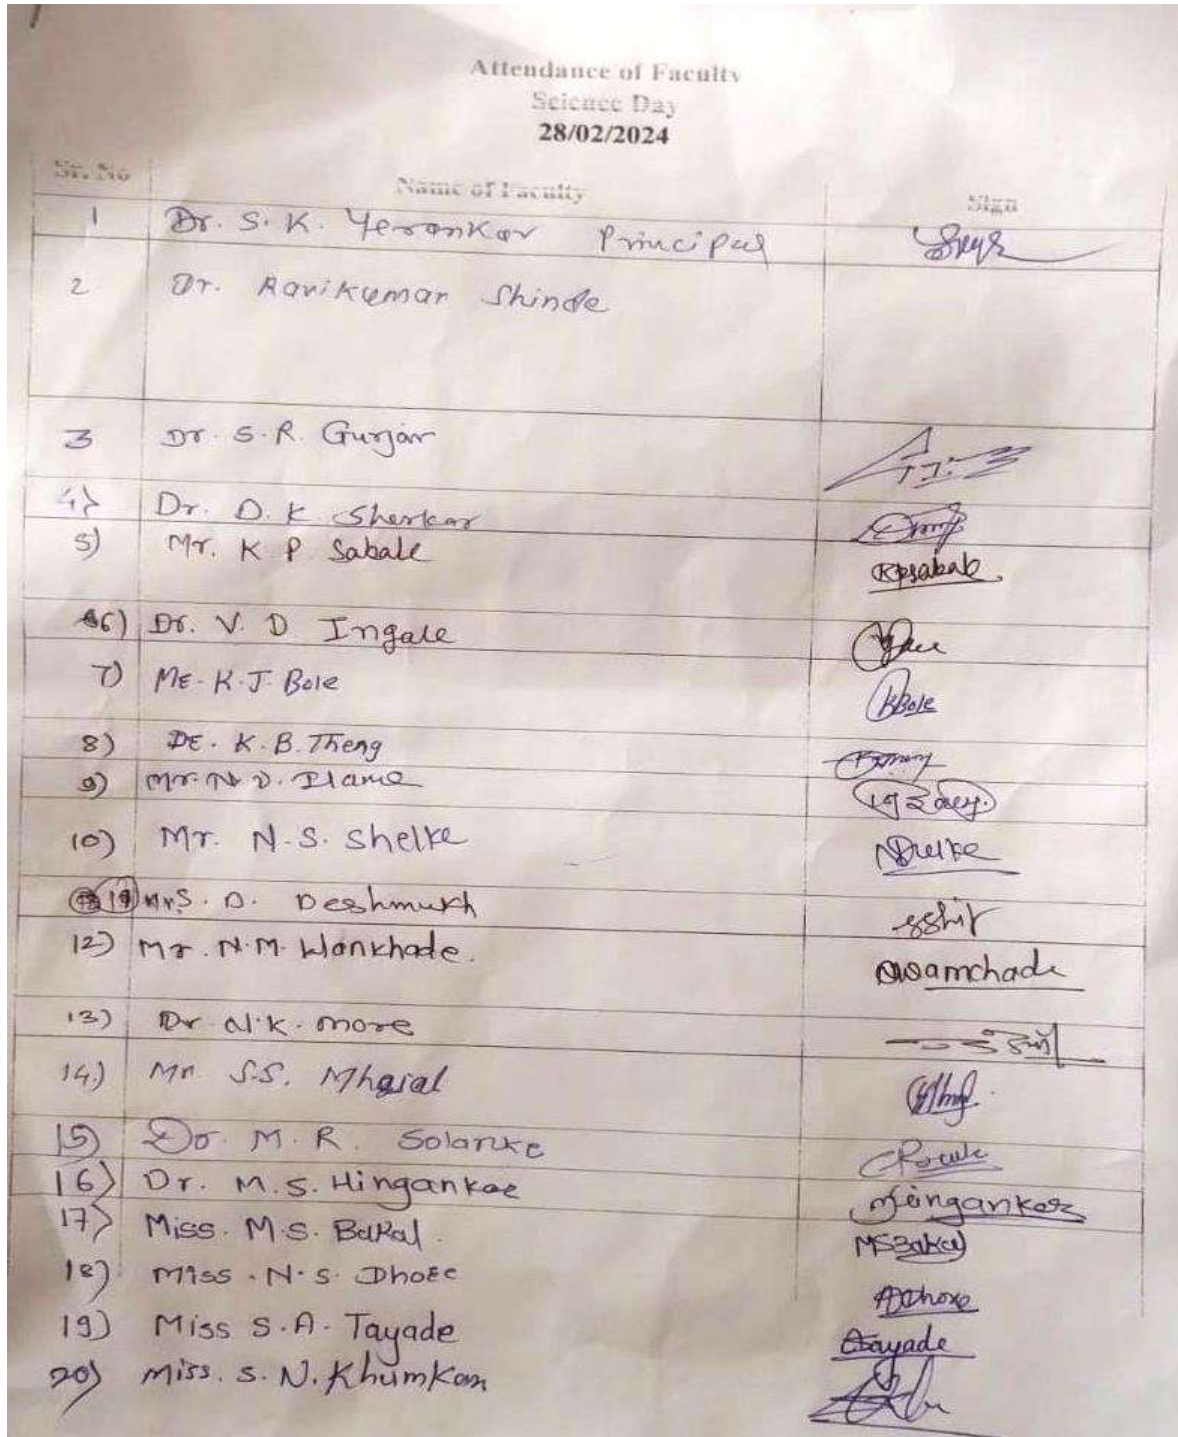 Attendance of Faculty
Science Day
28/02/2024
Sr. No Name of Faculty Sign
1 Dr. S. K. Yerankar Principal
2 Dr. Ravikumar Shinde
3 Dr. S. R. Gurjar
4) Dr. D. K Sherkar
5) Mr. K P. Sabale KPSabale
6) Dr. V. D Ingale
7) Mr. K. J. Bole KBole
8) Dr. K. B. Theng
9) Mr. N. D. Ilame
10) Mr. N. S. Shelke
11 S. D. Deshmukh
12) Mr. N. M. Wankhade.
13) Dr N. K. More
14.) Mr. S.S. Mhaisal
15) Dr. M. R. Solanke
16) Dr. M. S. Hingankar Hingankar
17) Miss. M. S. Bakal. MSBakal
18) Miss. N. S. Dhore Dhore
19) Miss S. A. Tayade Tayade
20) Miss. S. N. Khumkar